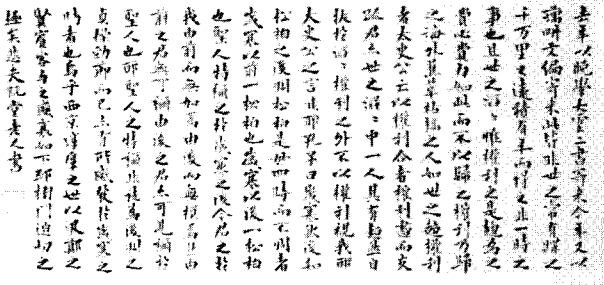 去年以晚學大雲二書寄來今年又以
藕畊文編寄來此皆非世之常有購之
千萬里之遠積有年而得之非一時之
事也且世之滔滔惟權利之是趨爲之
費心費力如此而不以歸之權利乃歸
之海外蕉萃枯槁之人如世之趨權利
者太史公云以權利合者權利盡而交
疎君亦世之滔滔中一人其有超然自
拔於滔滔權利之外不以權利視我耶
太史公之言非耶孔子曰歲寒然後知
松柏之後凋松柏是毌四時而不凋者
歲寒以前一松柏也歲寒以後一松柏
也聖人特稱之於歲寒之後今君之於
我由前而無加焉由後而無損焉然由
前之君無可稱由後之君亦可見稱於
聖人也耶聖人之特稱非徒爲後凋之
貞操勁節而已亦有所感發於歲寒之
時者也烏乎西京淳厖之世以汲鄭之
賢賓客與之盛衰如下邳榜門迫切之
極矣悲夫阮堂老人書